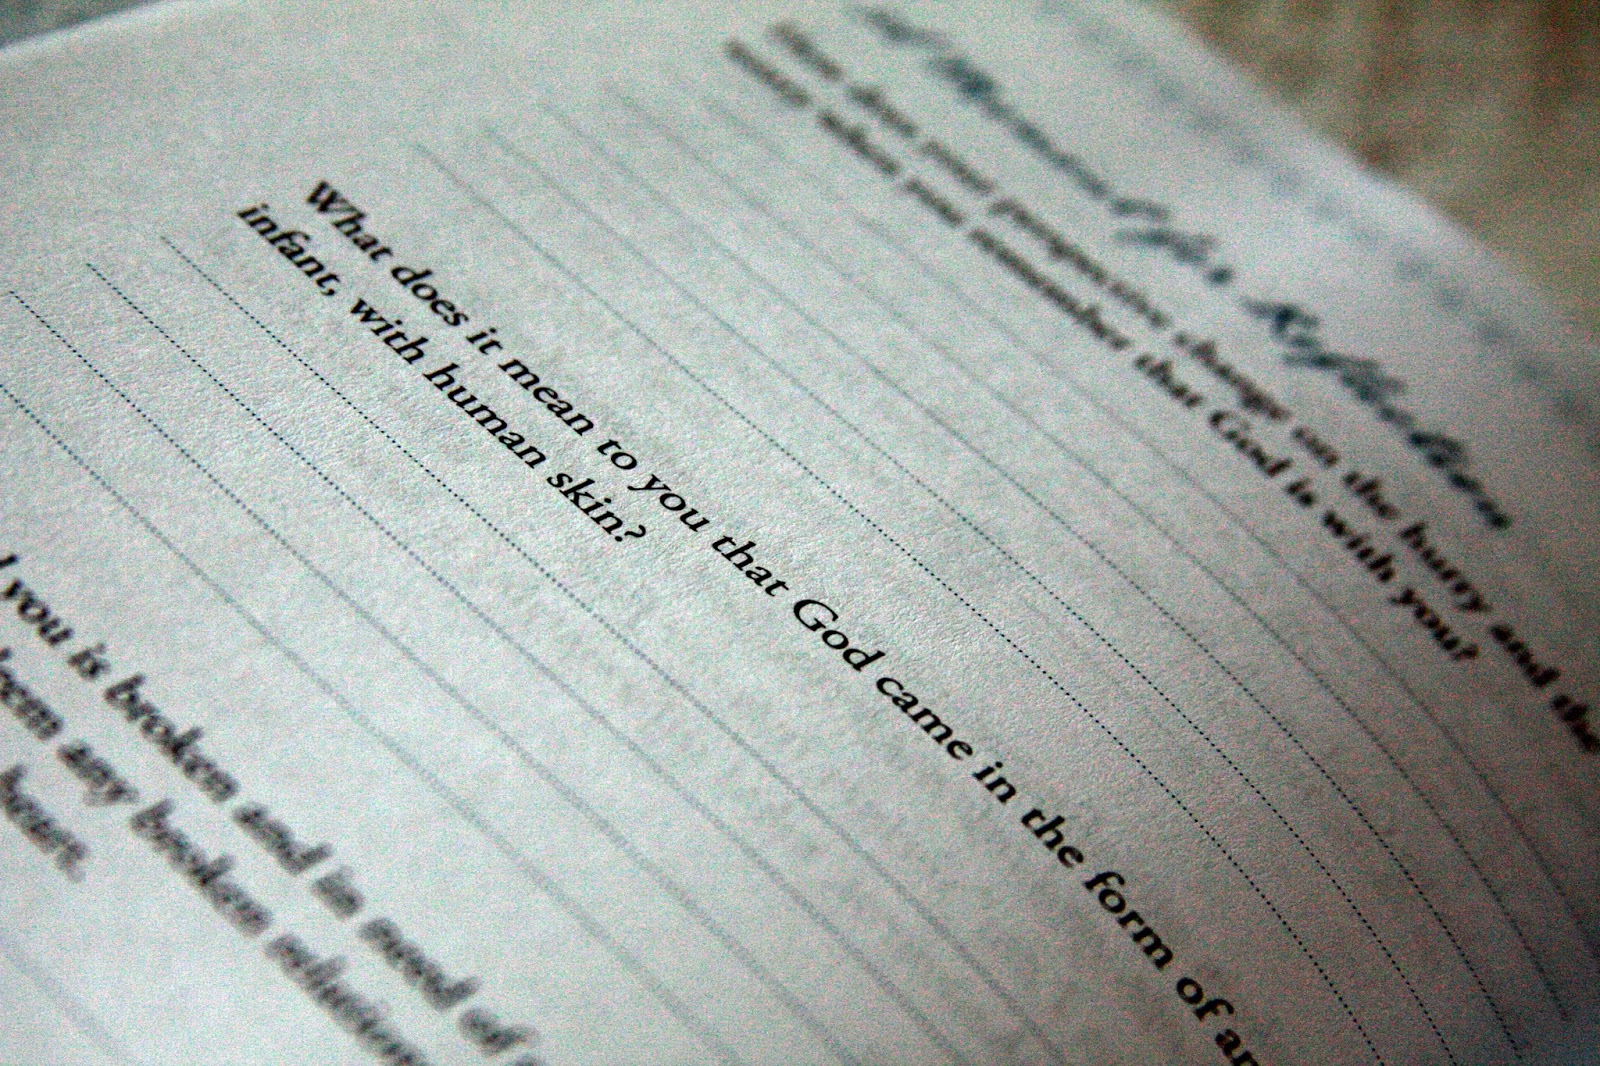 A Moment for Reflection
How does your perspective change on the hurry and the
when you remember that God is with you?
What does it mean to you that God came in the form of an
infant, with human skin?
you is broken and in need of
any broken
heart.